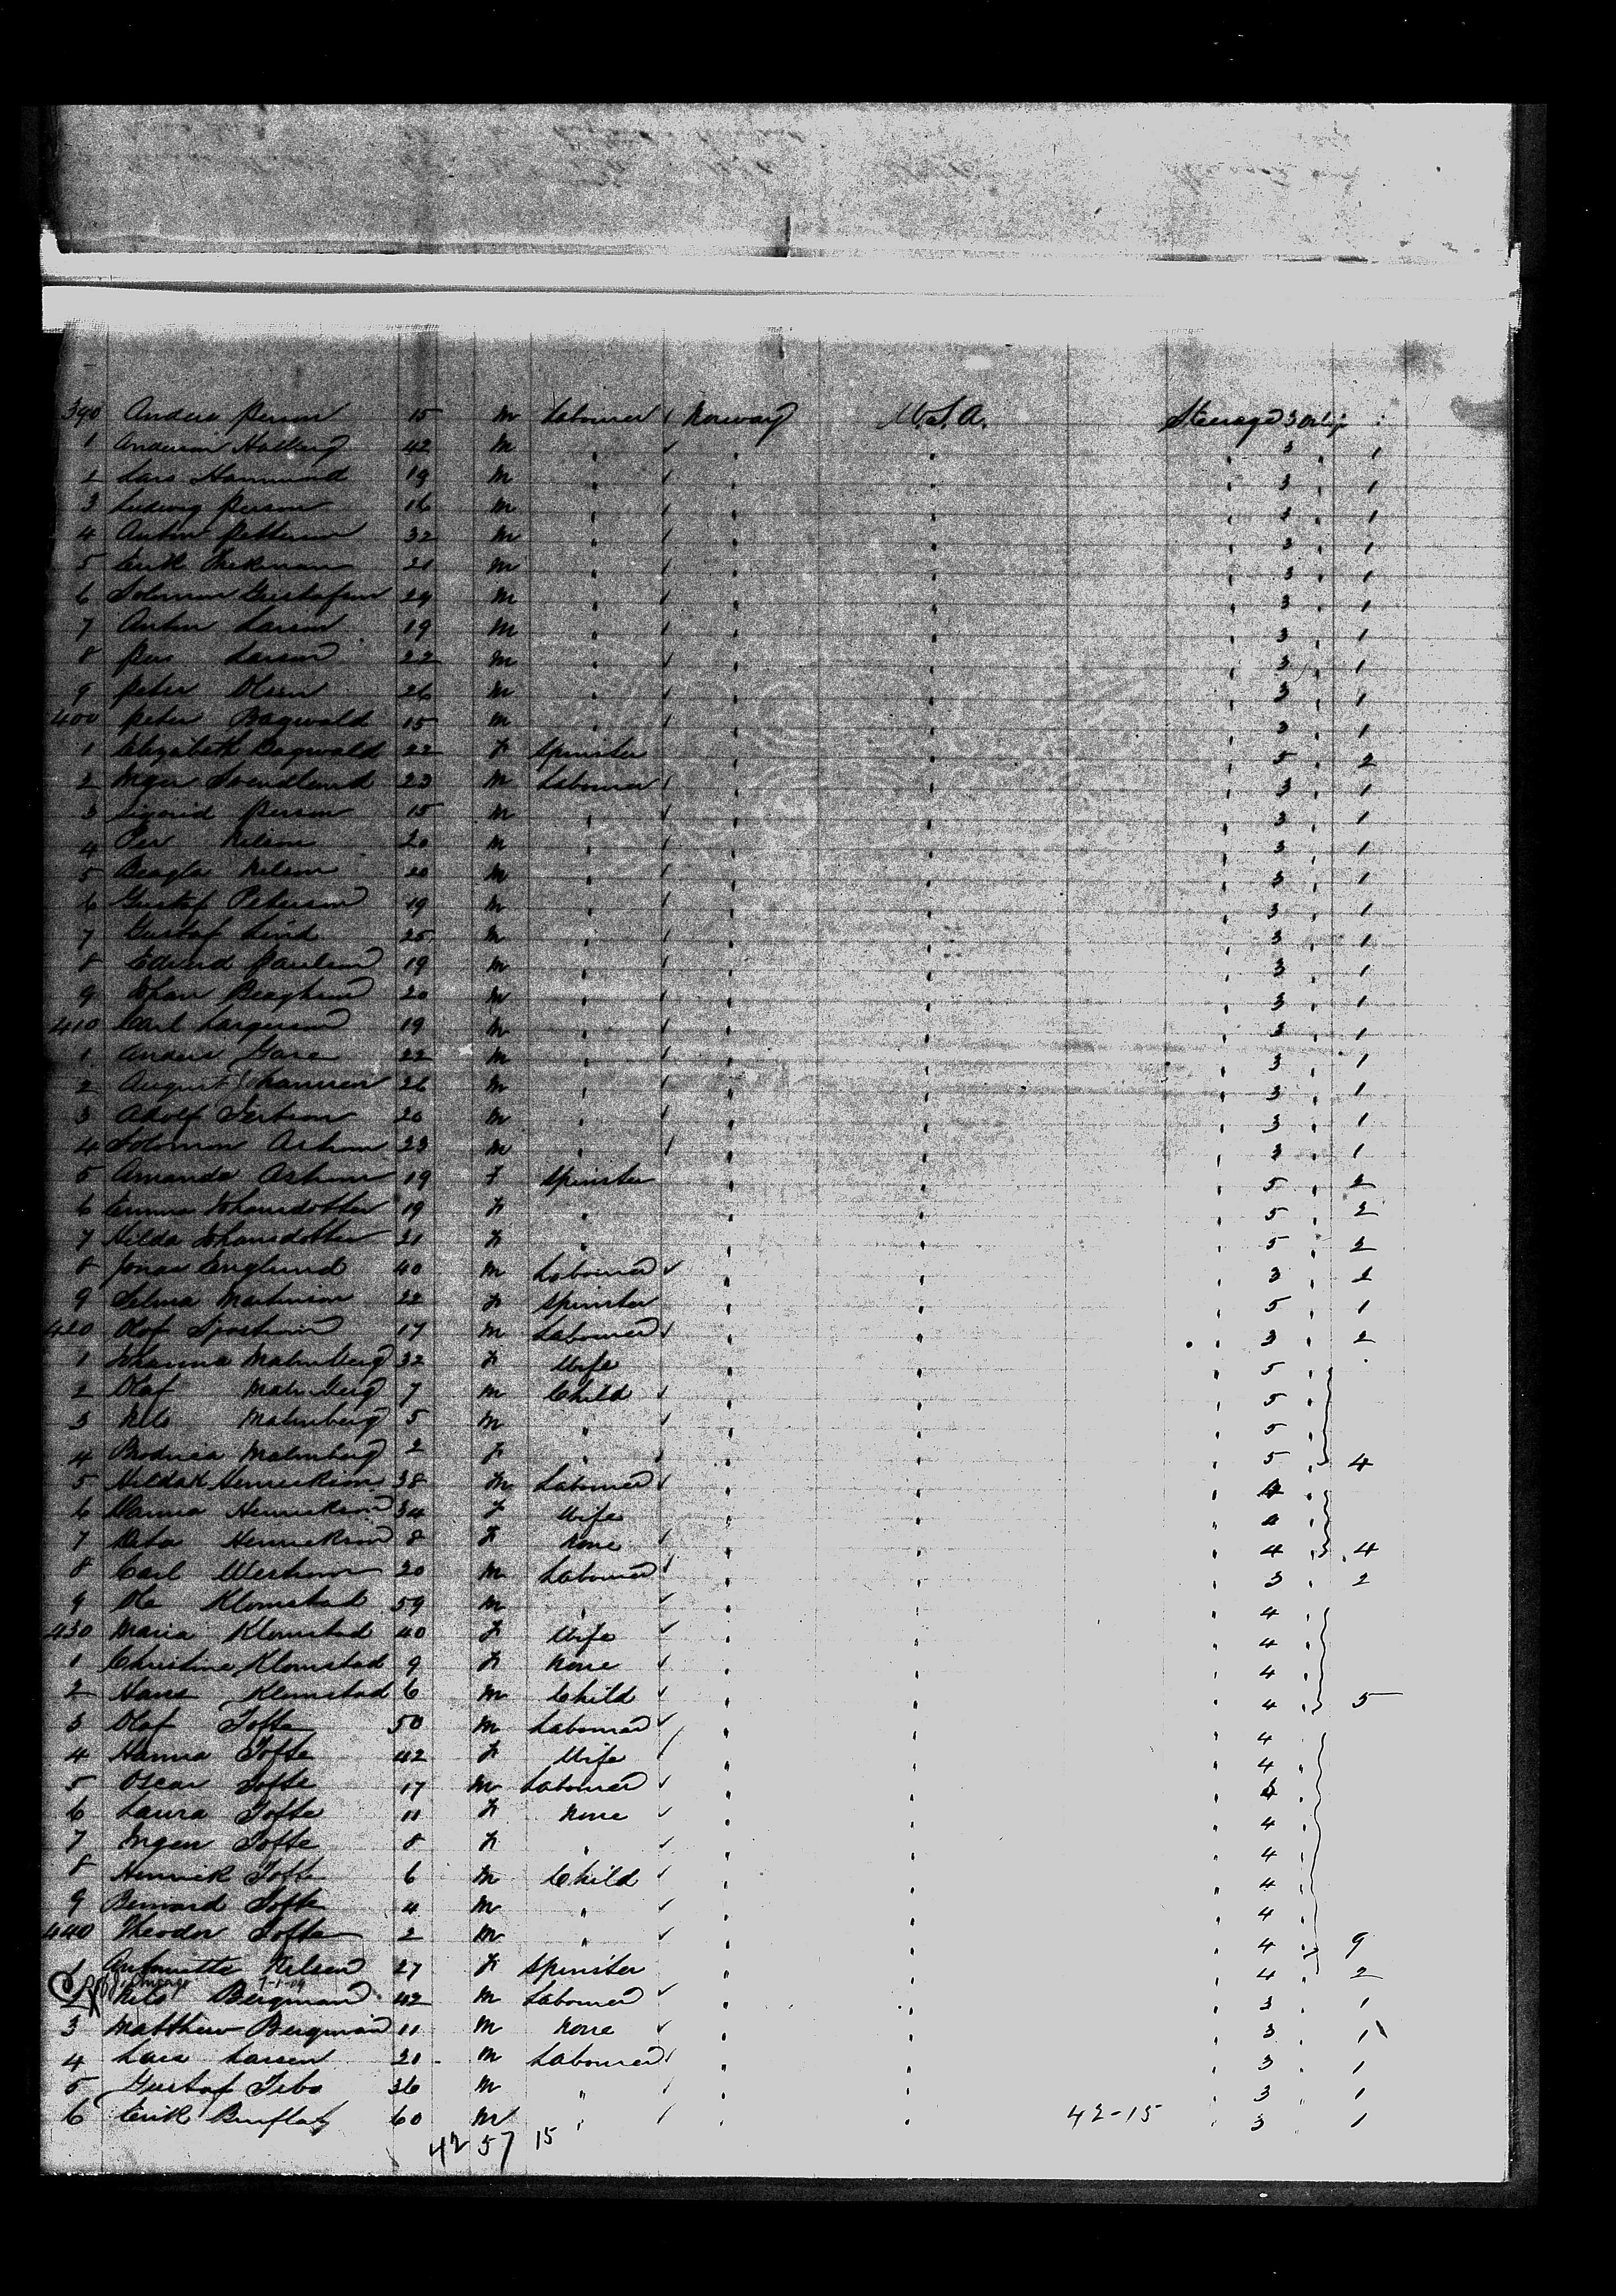 390 Anders Person 15 M Labourer / Norway U.S.A. Steerage 3 Only 1
1 Anderson Hallberg 42 M " / " " " 3 " 1
2 Lars Hammund 19 M " / " " " 3 " 1
3 Ludwig Person 16 M " / " " " 3 " 1
4 Anton Petterson 32 M " / " " " 3 " 1
5 Erik 21 M " / " " " 3 " 1
6 Solomon Gustafson 29 M " / " " " 3 " 1
7 Anton Larson 19 M " / " " " 3 " 1
8 Per Larson 22 M " / " " " 3 " 1
9 Peter Olsen 26 M " / " " " 3 " 1
400 Peter Bagwald 15 M " / " " " 3 " 1
1 Elizabeth Bagwald 22 F Spinster " " " 5 " 2
2 Inger Svendlund 23 M Labourer / " " " 3 " 1
3 Sigorid Person 15 M " / " " " 3 " 1
4 Per Nilson 20 M " / " " " 3 " 1
5 Nelson 20 M " / " " " 3 " 1
6 Gustaf Peterson 19 M " / " " " 3 " 1
7 Gustaf Lind 25 M " / " " " 3 " 1
8 Edvard Paulson 19 M " / " " " 3 " 1
9 Johan 20 M " / " " " 3 " 1
410 Carl 19 M " / " " " 3 " 1
1 Anders Gare 22 M " / " " " 3 " 1
2 August Johannsen 26 M " / " " " 3 " 1
3 Adolf 20 M " / " " " 3 " 1
4 Solomon Astrom 23 M " / " " " 3 " 1
5 Amanda Astrom 19 F Spinster " " " 5 " 2
6 Emma Johansdotter 19 F " " " " 5 " 2
7 Hilda Johansdotter 21 F " " " " 5 " 2
8 Jonas Englund 40 M Labourer ✓ " " " 3 " 2
9 Selma Martinson 22 F Spinster " " " 5 " 1
420 Olof Sjostrom 17 M Labourer / " " " 3 " 2
1 Johanna Malmberg 32 F Wife " " " 5 "
2 Olaf Malmberg 7 M Child ✓ " " " 5 "
3 Nils Malmberg 5 M " / " " " 5 "
4 Malmberg 2 F " / " " " 5 " 4
5 Henrickson 38 M Labourer / " " "
6 Hanna Henrickson 34 F Wife " " " 4 "
7 Henrickson 8 F None / " " " 4 " 4
8 Carl Westrom 20 M Labourer / " " " 3 " 2
9 Ole Klomstad 59 M " ✓ " " " 4 "
430 Maria Klomstad 40 F Wife ✓ " " " 4 "
1 Christine Klomstad 9 F None ✓ " " " 4 "
2 Hans Klomstad 6 M Child ✓ " " " 4 " 5
3 Olaf Tofte 50 M Labourer ✓ " " " 4 "
4 Hanna Tofte 42 F Wife / " " " 4 "
5 Oscar Tofte 17 M Labourer ✓ " " " 4 "
6 Laura Tofte 11 F None ✓ " " " 4 "
7 Ingen Tofte 8 F " ✓ " " " 4 "
8 Henrick Tofte 6 M Child ✓ " " " 4 "
9 Bernard Tofte 4 M " ✓ " " " 4 "
440 Theodor Tofte 2 M " ✓ " " " 4 " 9
1 Antoinette Nelsen 27 F Spinster " " " 4 " 2
2 Nils Bergman 42 M Labourer ✓ " " " 3 " 1
3 Matthew Bergman 11 M None ✓ " " " 3 " 1
4 Lars Larsen 20 M Labourer / " " " 3 " 1
5 Gustaf 36 M " / " " " 3 " 1
6 Erik 60 M " / " " 42-15 " 3 " 1
42 57 15